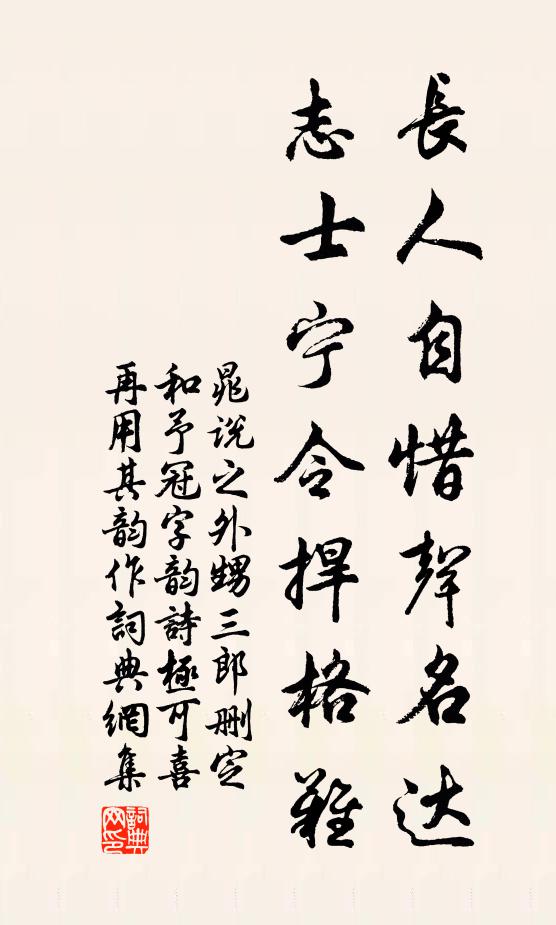 長人自惜聲名达
志士宁令捍格難
晁说之外甥三郎删定
和予冠字韵詩極可喜
再用其韵作詞典網集
詞典网印